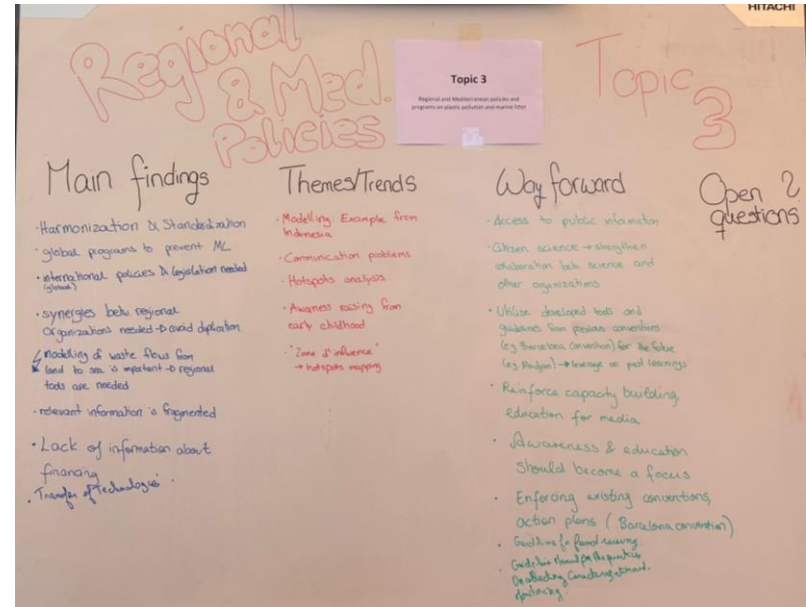 HITACHI
Regional
& Med.
Policies
Topic 3
Regional and Mediterranean policies and
programs on plastic pollution and marine litter
Topic
3
Main findings
· Harmonization & Standardization
· global programs to prevent ML
· international policies & legislation needed
(global)
· synergies betw regional
organizations needed → avoid duplication
modelling of waste flows from
land to sea is important → regional
tools are needed
· relevant information is fragmented
· Lack of information about
financing
· Transfer of Technologies
Themes/Trends
· Modelling: Example from
Indonesia
· Communication problems
· Hotspots analysis
· Awareness raising from
early childhood
· "Zone d'influence"
→ hotspots mapping
Way forward
· Access to public information
· Citizen science → strengthen
collaboration betw science and
other organizations
· Utilise developed tools and
guidelines from previous conventions
(eg Barcelona convention) for the future
(eg ) → leverage on past learnings
· Reinforce capacity building,
education for media
· Awareness & education
should become a focus
· Enforcing existing conventions,
action plans (Barcelona convention)
· Guidelines for
Guidelines for
monitoring.
Open ?
questions